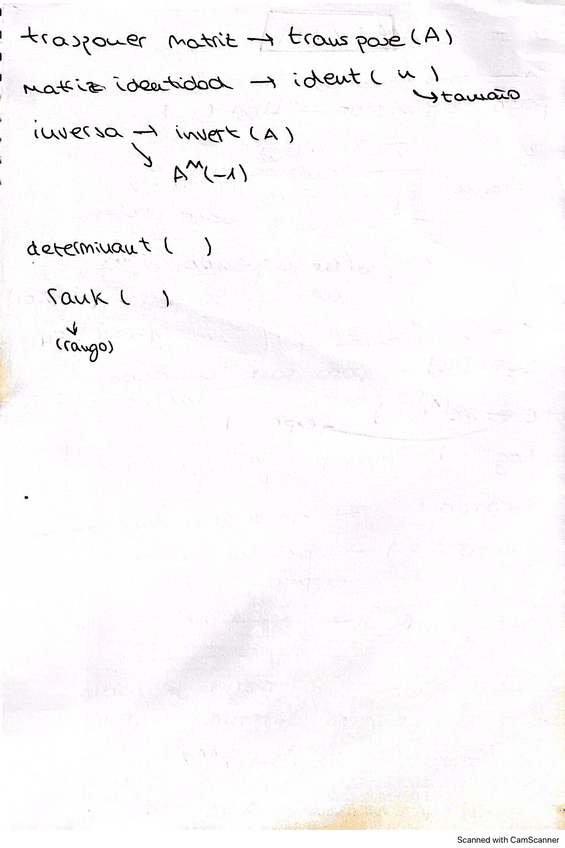 trasponer matriz → transpose (A)
matriz identidad → ident ( n )
↳ tamaño
inversa → invert (A)
↘ A^^(-1)
determinant ( )
rank ( )
↓
(rango)
Scanned with CamScanner